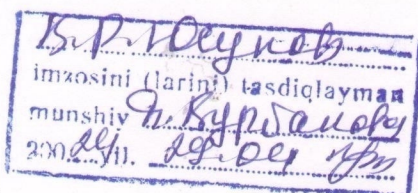 Б.Р. Юсупов
imzosini (larini) tasdiqlayman
munshiy Н. Курбанова
200 24 yil. 29.04